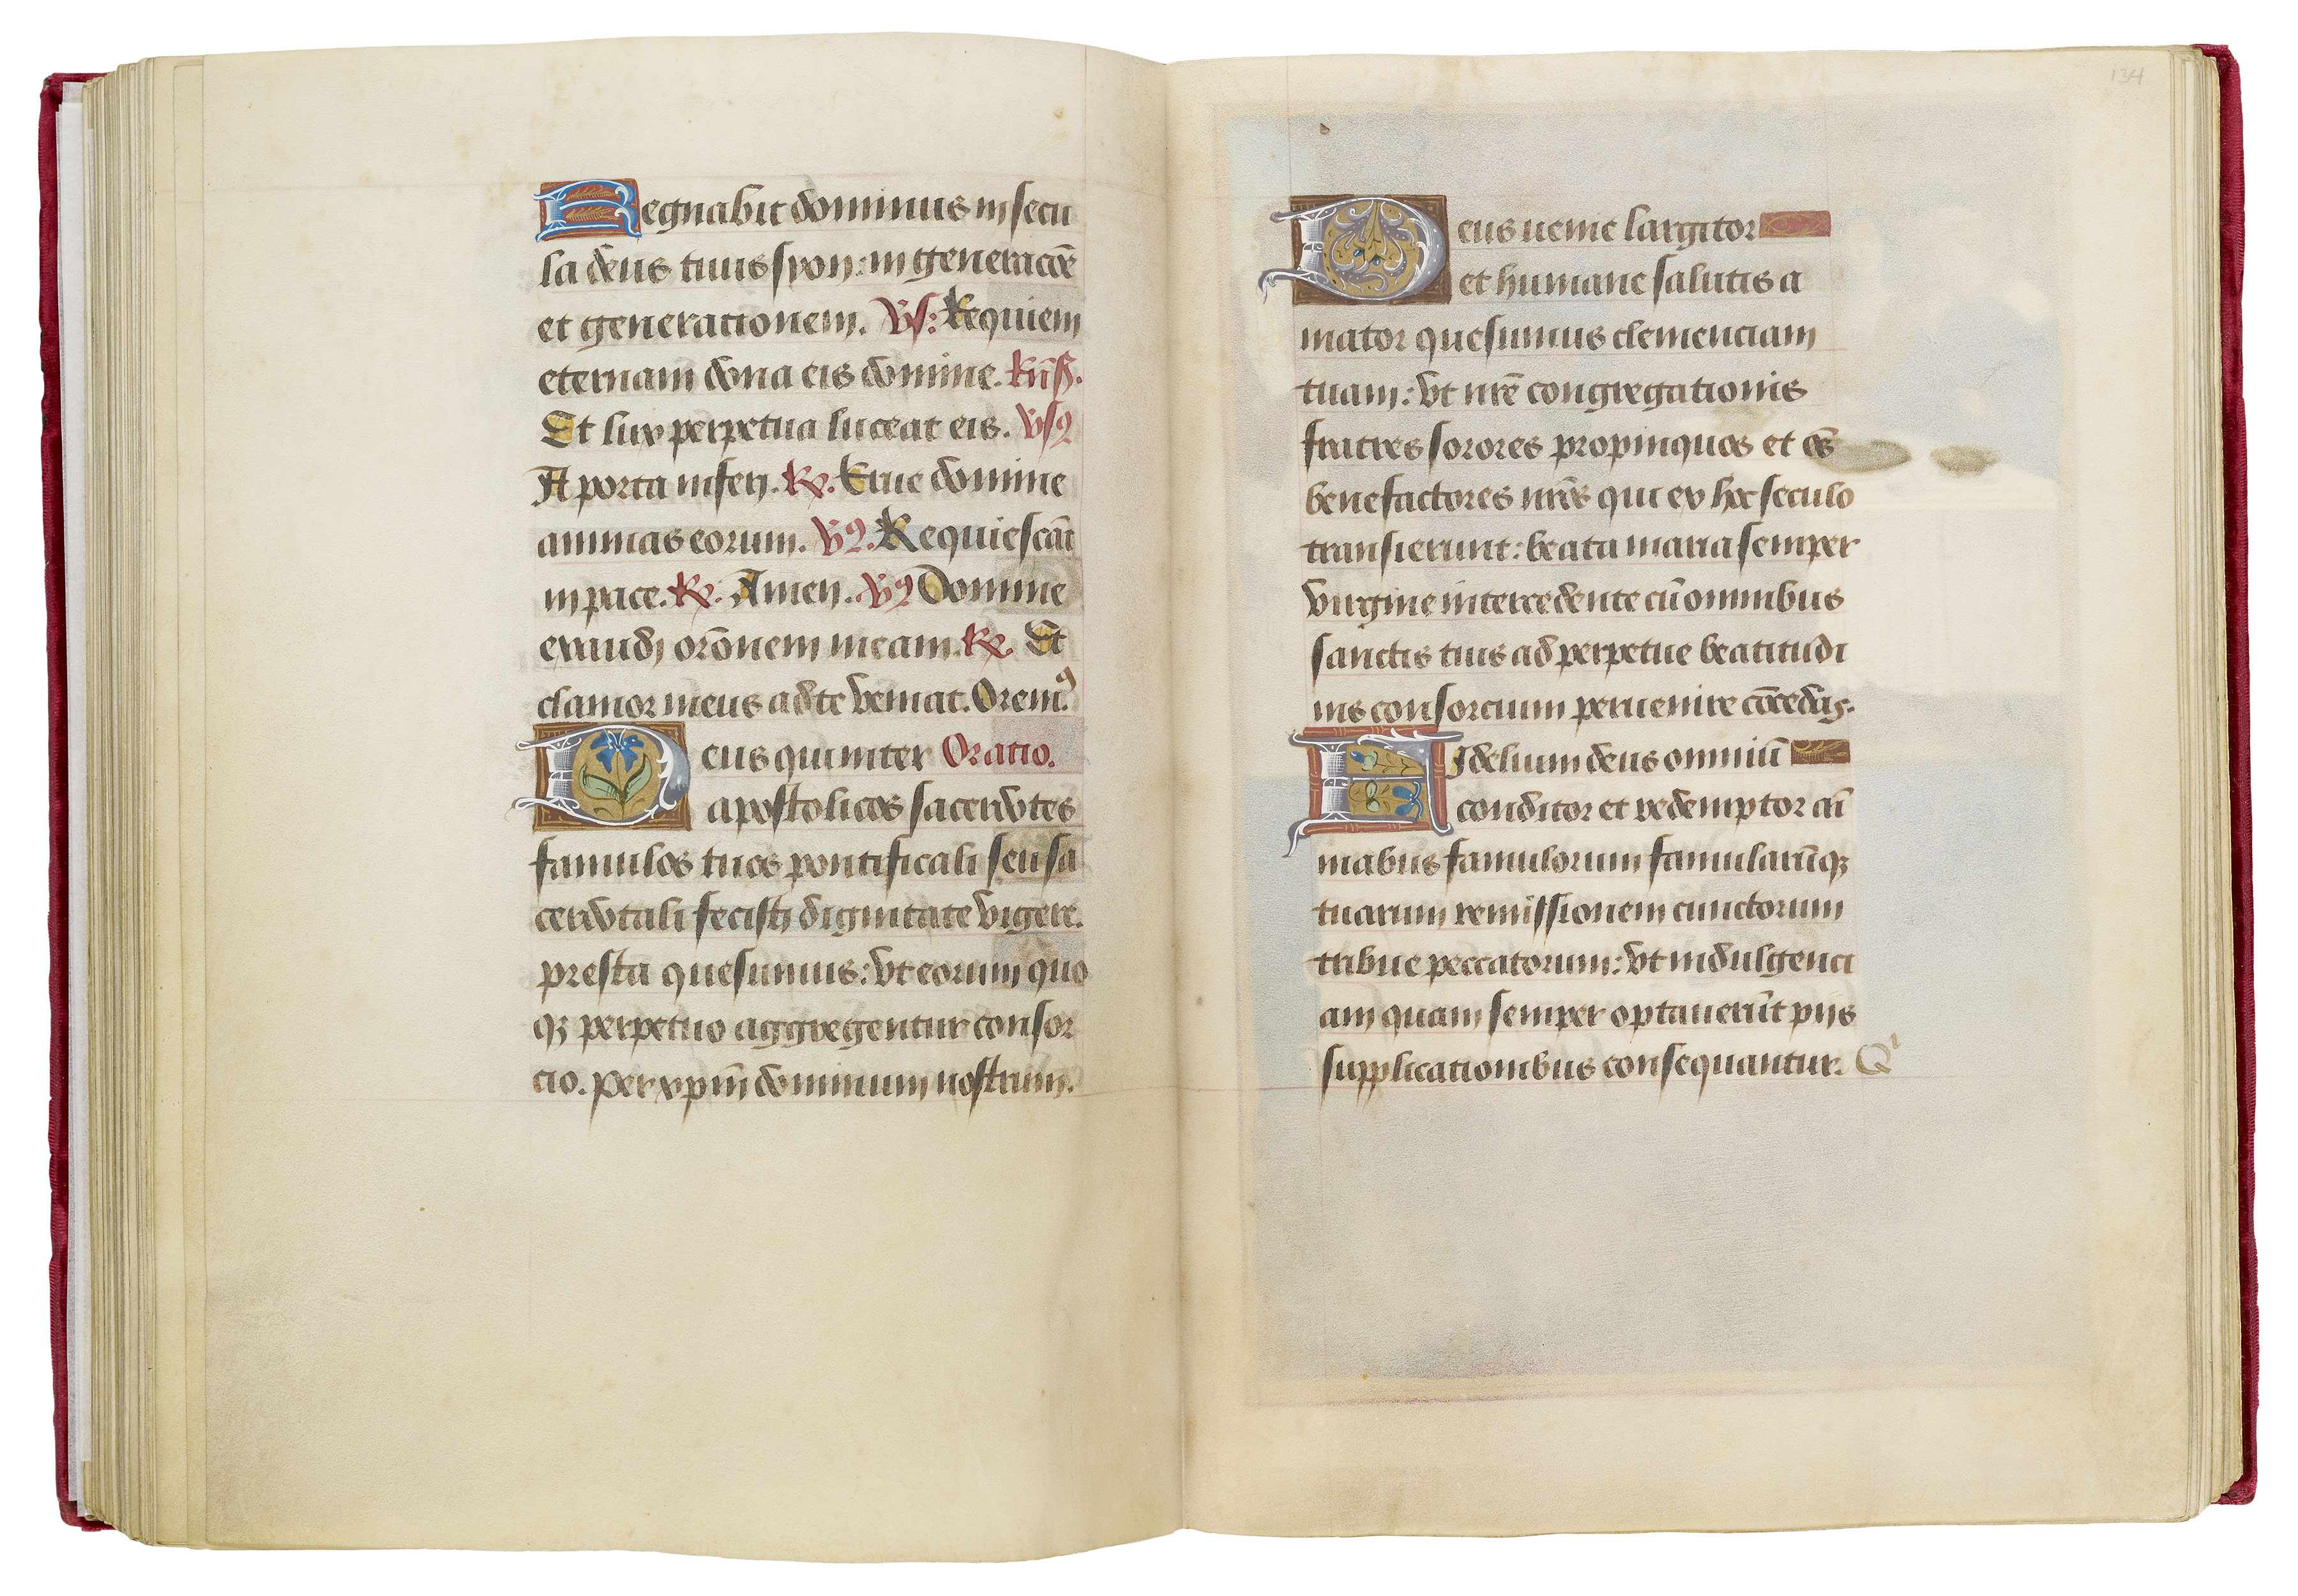 Regnabit dominus in secu
la deus tuus syon: in generacōē
et generationem. Vs: Requiem
eternam dona eis domine. Rūs.
Et lux perpetua luceat eis. Vs
A porta inferi. R. Erue domine
animas eorum. V. Requiescāt
in pace. R. Amen. V. Domine
exaudi orōnem meam. R. Et
clamor meus ad te veniat. Orem9
Deus qui inter Oratio.
apostolicos sacerdotes
famulos tuos pontificali seu sa
cerdotali fecisti dignitate vigere.
presta quesumus: vt eorum quo
qz perpetuo aggregentur consor
cio. per xpm̄ dominum nostrum.
134
Deus uenie largitor
et humane salutis a
mator quesumus clemenciam
tuam: vt nrē congregationis
fratres sorores propinquos et oēs
benefactores nrōs qui ex hoc seculo
transierunt: beata maria semper
virgine intercedente cū omnibus
sanctis tuis ad perpetue beatitudi
nis consorcium peruenire cōcedas.
Fidelium deus omniū
conditor et redemptor ani
mabus famulorum famularūqz
tuarum remissionem cunctorum
tribue peccatorum: vt indulgenci
am quam semper optauerūt piis
supplicationibus consequantur. Qi